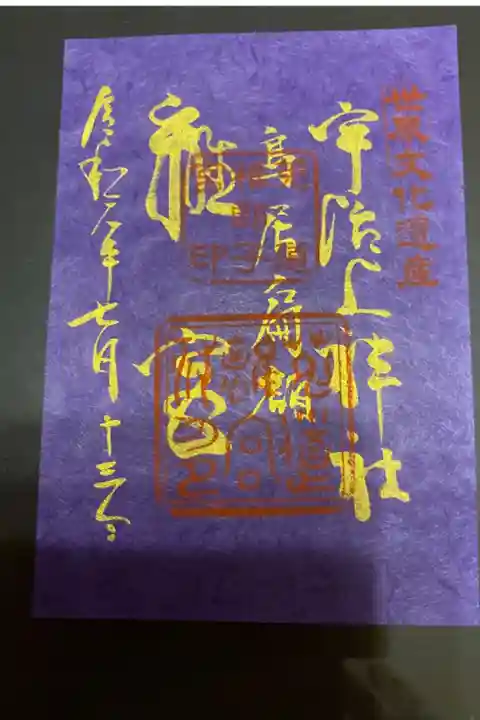 世界文化遺産
宇治上神社
鳥居扁額
離宮
令和元年七月十三日